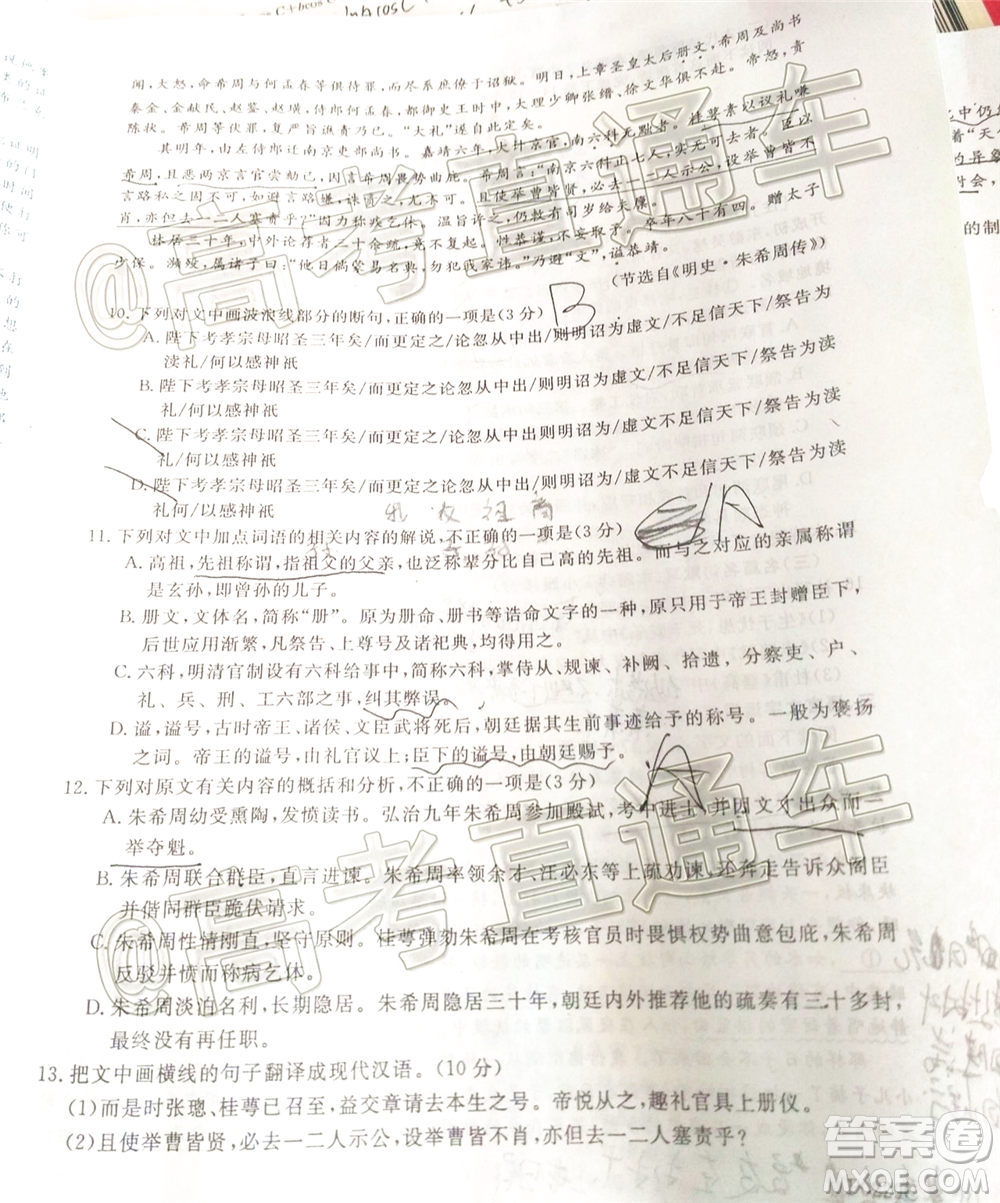 闻,大怒,命希周与何孟春等俱待罪,而尽系庶僚于诏狱。明日,上章圣皇太后册文,希周及尚书
秦金、金献民、赵鉴、赵璜,侍郎何孟春,都御史王时中,大理少卿张缙、徐文华俱不赴。帝怒,责
陈状。希周等伏罪,复严旨谯责乃已。“大礼”遂自此定矣。
其明年,由左侍郎迁南京吏部尚书。嘉靖六年,大计京官,南六科无黜者。桂萼素以议礼嗛
希周,且恶两京言官尝劾己,因言希周畏势曲庇。希周言:“南京六科止七人,实无可去者。臣以
言路私之固不可,如避言路嫌,诛责之,尤不可。且使举曹皆贤,必去一二人示公,设举曹皆不
肖,亦但去一二人塞责乎?”因力称疾乞休。温旨许之,仍敕有司岁给夫廪。
林居三十年,中外论荐者三十余疏,竟不复起。性恭谨,不妄取予。卒年八十有四。赠太子
少保。濒殁,属诸子曰:“他日倘蒙易名典,勿犯我家讳。”乃避“文”,谥恭靖。
(节选自《明史·朱希周传》)
B
10. 下列对文中画波浪线部分的断句,正确的一项是(3分)
A. 陛下考孝宗母昭圣三年矣/而更定之论忽从中出/则明诏为虚文/不足信天下/祭告为渎
礼/何以感神祇
B. 陛下考孝宗母昭圣三年矣/而更定之论忽从中出/则明诏为虚文不足信天下/祭告为渎
礼/何以感神祇
C. 陛下考孝宗母昭圣三年矣/而更定之/论忽从中出/则明诏为虚文不足信天下/祭告为渎
礼/何以感神祇
D. 陛下考孝宗母昭圣三年矣/而更定之/论忽从中出/则明诏为虚文/不足信天下/祭告为渎
礼何/以感神祇
A
11. 下列对文中加点词语的相关内容的解说,不正确的一项是(3分)
A. 高祖,先祖称谓,指祖父的父亲,也泛称辈分比自己高的先祖。而与之对应的亲属称谓
是玄孙,即曾孙的儿子。
B. 册文,文体名,简称“册”。原为册命、册书等诰命文字的一种,原只用于帝王封赠臣下,
后世应用渐繁,凡祭告、上尊号及诸祀典,均得用之。
C. 六科,明清官制设有六科给事中,简称六科,掌侍从、规谏、补阙、拾遗,分察吏、户、
礼、兵、刑、工六部之事,纠其弊误。
D. 谥,谥号,古时帝王、诸侯、文臣武将死后,朝廷据其生前事迹给予的称号。一般为褒扬
之词。帝王的谥号,由礼官议上;臣下的谥号,由朝廷赐予。
A
12. 下列对原文有关内容的概括和分析,不正确的一项是(3分)
A. 朱希周幼受熏陶,发愤读书。弘治九年朱希周参加殿试,考中进士,并因文才出众而一
举夺魁。
B. 朱希周联合群臣,直言进谏。朱希周率领余才、汪必东等上疏劝谏,还奔走告诉众阁臣
并偕同群臣跪伏请求。
C. 朱希周性情刚直,坚守原则。桂萼弹劾朱希周在考核官员时畏惧权势曲意包庇,朱希周
反驳并愤而称病乞休。
D. 朱希周淡泊名利,长期隐居。朱希周隐居三十年,朝廷内外推荐他的疏奏有三十多封,
最终没有再任职。
13. 把文中画横线的句子翻译成现代汉语。(10分)
(1)而是时张璁、桂萼已召至,益交章请去本生之号。帝悦从之,趣礼官具上册仪。
(2)且使举曹皆贤,必去一二人示公,设举曹皆不肖,亦但去一二人塞责乎?
@高考直通车
@高考直通车
答案圈
MXQE.COM